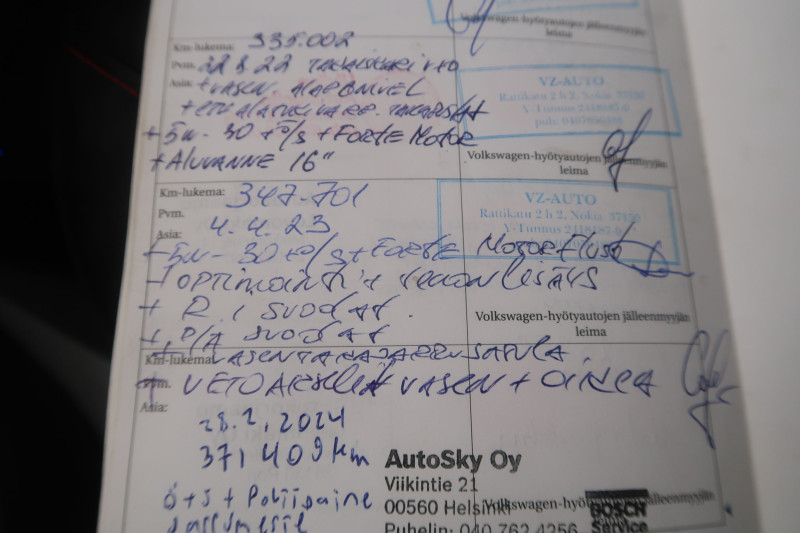 Volkswagen-hyötyautojen jälleenmyyjän
leima
Km-lukema: 335.002
Pvm. 22.8.22
Asia: + VASEN. ALAPONIVEL
+ 5W-30 + Ö/S + FORTE MOTOR
+ ALUVANNE 16"
VZ-AUTO
Rattikatu 2 h 2, Nokia 37150
Y-Tunnus 2418187-6
Volkswagen-hyötyautojen jälleenmyyjän
leima
Km-lukema: 347.701
Pvm. 4.4.23
Asia:
+ 5W-30 + Ö/S + FORTE MOTOR FLUSH
+ OPTIMOINTI + TEHON LISÄYS
+ R. / SUODAT.
+ P/A SUODAT
VZ-AUTO
Rattikatu 2 h 2, Nokia 37150
Y-Tunnus 2418187-6
Volkswagen-hyötyautojen jälleenmyyjän
leima
Km-lukema: + VASEN TAKAJARRUSATULA
Pvm. + VETOAKSELIT VASEN + OIKEA
Asia:
28.2.2024
371 409 km
Ö+S+
AutoSky Oy
Viikintie 21
00560 Helsinki
Volkswagen-hyötyautojen jälleenmyyjän
Puhelin: 040 762 4256
BOSCH
Service